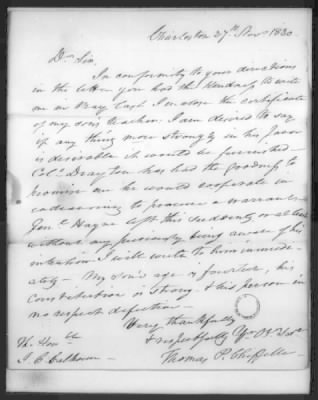 Charleston 27th Novr 1830
Dr Sir,
In conformity to your directions
in the letter you had the kindness to write
me in May last I inclose the certificate
of my son's teacher. I am desired to say
if any thing more strongly in his favor
is desirable it would be furnished.
Colo. Drayton has had the goodness to
promise me he would cooperate in
endeavoring to procure a warrant.
Genl. Hayne left this suddenly or at least
without my previously being aware of his
intention. I will write to him immedi-
ately - My son's age is fourteen, his
constitution is strong & his person in
no respect defective.
Very thankfully
& respectfully Yr Ob Svt
Thomas P. Cheffelle
The Honble
J. C. Calhoun